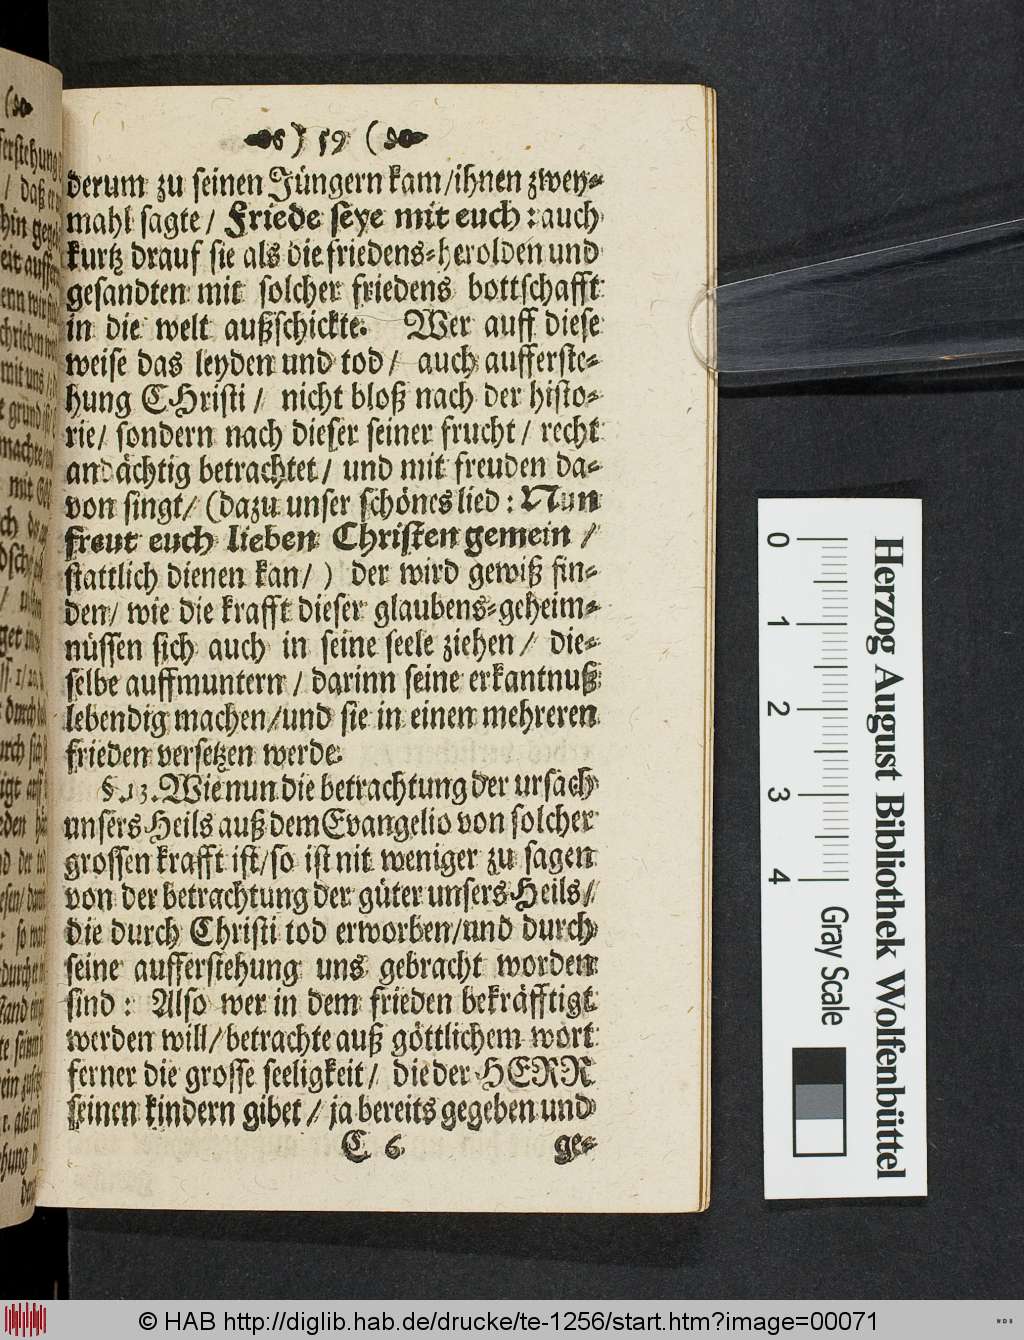 ) 59 (
derum zu seinen Jüngern kam/ihnen zwey-
mahl sagte / Friede seye mit euch : auch
kurtz drauf sie als die friedens-herolden und
gesandten mit solcher friedens bottschafft
in die welt außschickte. Wer auff diese
weise das leyden und tod / auch aufferste-
hung CHristi / nicht bloß nach der histo-
rie/ sondern nach dieser seiner frucht / recht
andächtig betrachtet / und mit freuden da-
von singt/ (dazu unser schönes lied : Nun
freut euch lieben Christen gemein /
stattlich dienen kan/ ) der wird gewiß fin-
den/ wie die krafft dieser glaubens-geheim-
nüssen sich auch in seine seele ziehen / die-
selbe auffmuntern / darinn seine erkantnuß
lebendig machen/und sie in einen mehreren
frieden versetzen werde.
§. 13. Wie nun die betrachtung der ursach
unsers Heils auß dem Evangelio von solcher
grossen krafft ist/so ist nit weniger zu sagen
von der betrachtung der güter unsers Heils/
die durch Christi tod erworben/und durch
seine aufferstehung uns gebracht worden
sind : Also wer in dem frieden bekräfftigt
werden will/betrachte auß göttlichem wort
ferner die grosse seeligkeit / die der HERR
seinen kindern gibet / ja bereits gegeben und
C 6 ge-
Herzog August Bibliothek Wolfenbüttel
0 1 2 3 4 Gray Scale
© HAB http://diglib.hab.de/drucke/te-1256/start.htm?image=00071